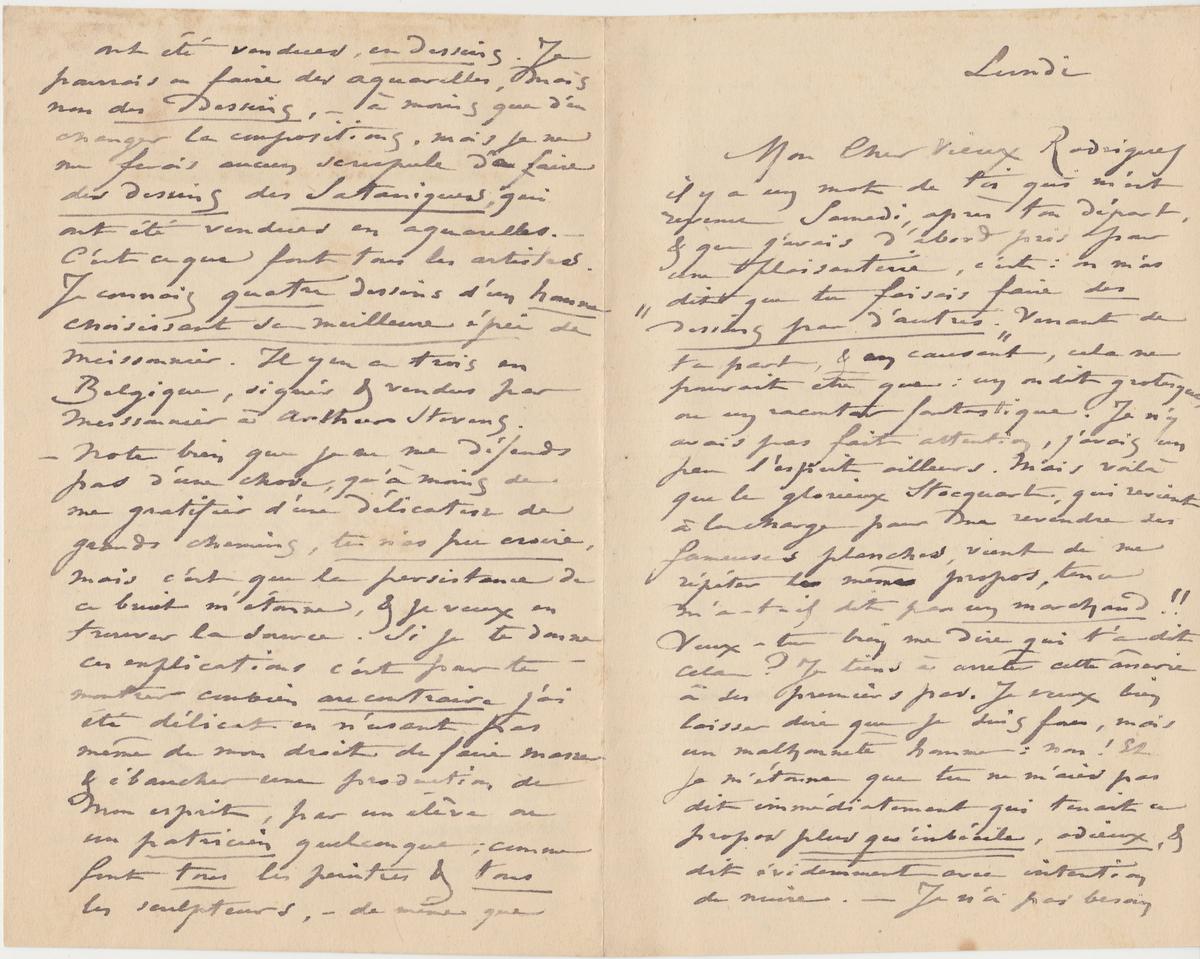 Lundi
Mon Cher Vieux Rodrigues
il y a un mot de toi qui m'est
revenu Samedi, après ton départ,
& que j'avais d'abord pris pour
une plaisanterie, c'est : on m'as
"dit que tu faisais faire des
dessins par d'autres." Venant de
ta part, & en causant, cela ne
pouvait être que : un ondit grotesque
ou un racontar fantastique. Je n'y
avais pas fait attention, j'avais un
peu l'esprit ailleurs. Mais voilà
que le glorieux Stocquart, qui revient
à la charge pour me revendre ses
fameuses planches, vient de me
répéter les mêmes propos, tenu
m'a-t-il dit par un marchand !!
Veux-tu bien me dire qui t'a dit
cela ? Je tiens à arrêter cette ânerie
à ses premiers pas. Je veux bien
laisser dire que je suis fou, mais
un malhonnête homme : non ! Et
je m'étonne que tu ne m'aies pas
dit immédiatement qui tenait ce
propos plus qu'imbécile, odieux, &
dit évidemment avec intention
de nuire. — Je n'ai pas besoin
ont été vendues, en dessins. Je
pourrais en faire des aquarelles, mais
non des Dessins, – à moins que d'en
changer la compositions, mais je ne
me ferais aucun scrupule d'en faire
des dessins des Sataniques, qui
ont été vendues en aquarelles. —
C'est ce que font tous les artistes.
Je connais quatre dessins d'un homme
choisissant sa meilleure épée de
Meissonnier. Il y en a trois en
Belgique, signés & vendus par
Meissonnier à Arthur Stevens.
– Note bien que je ne me défends
pas d'une chose, qu'à moins de
me gratifier d'une délicatesse de
grands chemins, tu n'as pu croire,
mais c'est que la persistance de
ce bruit m'étonne, & je veux en
trouver la source. Si je te donne
ces explications c'est pour te –
montrer combien au contraire j'ai
été délicat en n'usant pas
même de mon droit de faire masser
& ébaucher une production de
mon esprit, par un élève ou
un patricien quelconque ; comme
font tous les peintres & tous
les sculpteurs, – de même que